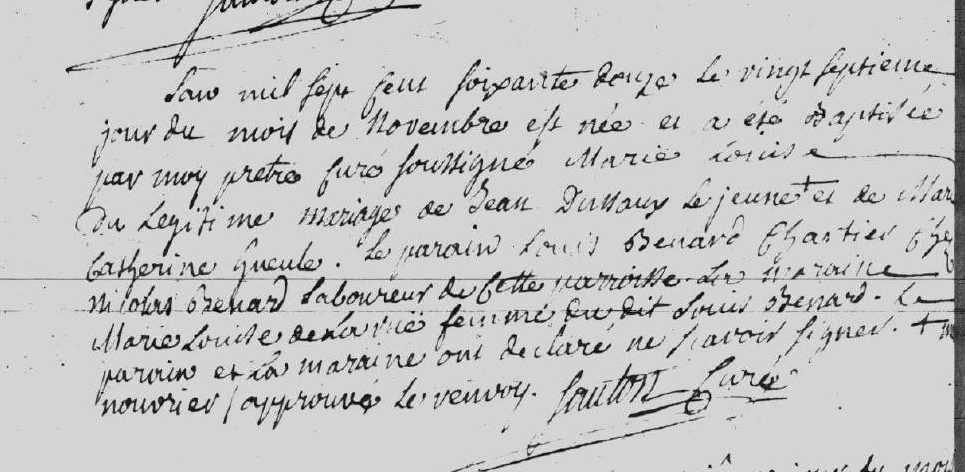 Lan mil sept cent soixante douze le vingt septieme
jour du mois de Novembre est née et a été Baptisée
par moy pretre curé soussigné Marie Louise
Du Legitime mariage de Jean Dussaux le jeune + et de Mar
Catherine Gueule. le parain Louis Benard Chartier che
nicolas Benard laboureur de cette parroisse. la maraine
Marie Louise de La rüe femme du dit Louis Benard. Le
parain et La maraine ont declaré ne scavoir signer. + m
nouvrier approuvé le renvoy. Curé